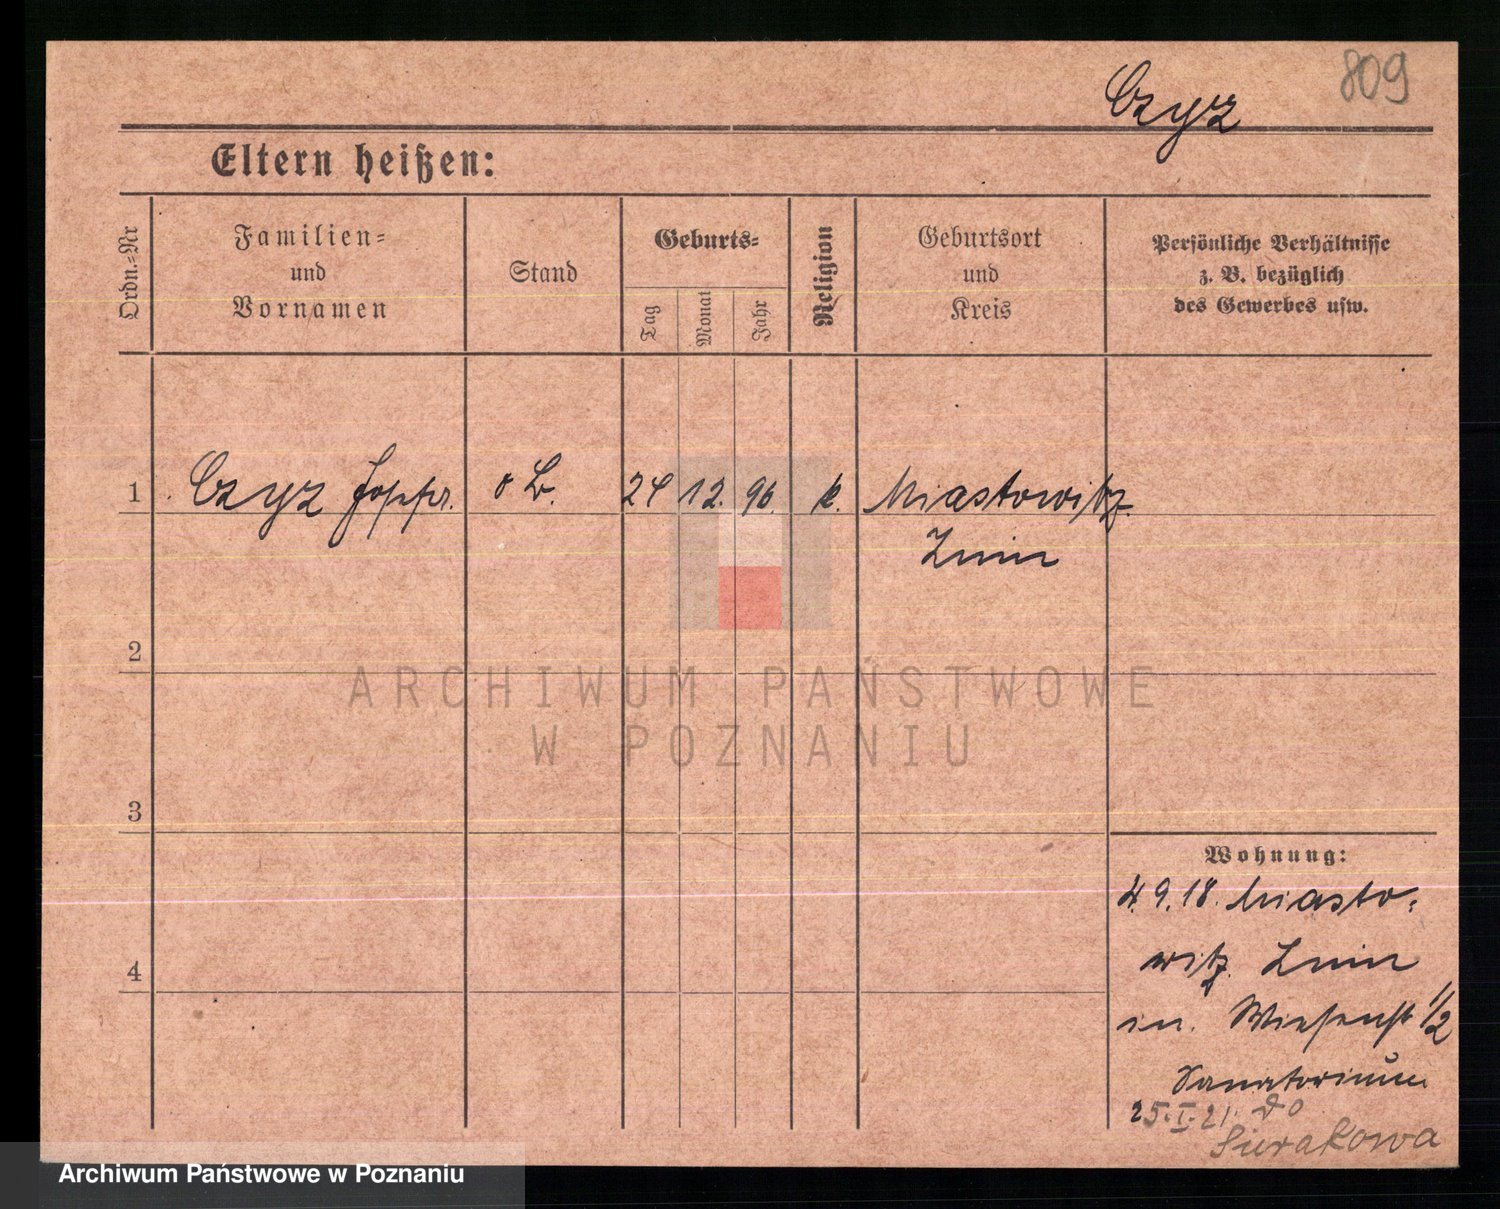 809
Czyz
Eltern heißen:
Ordn.-Nr
Familien-
und
Vornamen
Stand
Geburts-
Tag
Monat
Jahr
Religion
Geburtsort
und
Kreis
Persönliche Verhältnisse
z. B. bezüglich
des Gewerbes usw.
1 Czyz 24 12. 96. k. Miastowitz
Znin
2
ARCHIWUM PAŃSTWOWE
W POZNANIU
3
Wohnung:
4.9.18. Miasto-
witz. Znin
in. Wiesenstr 1/2
4
Sanatorium
25.I.21. do
Sierakowa
Archiwum Państwowe w Poznaniu